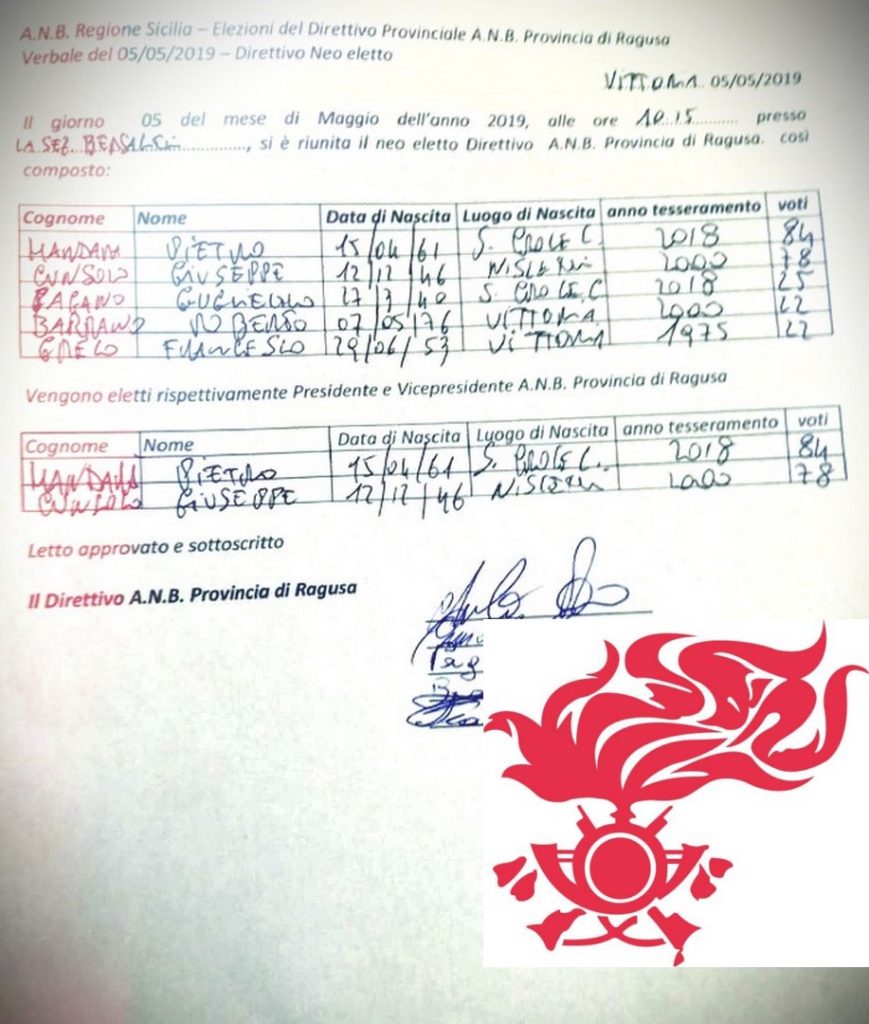 A.N.B. Regione Sicilia – Elezioni del Direttivo Provinciale A.N.B. Provincia di Ragusa
Verbale del 05/05/2019 – Direttivo Neo eletto
VITTORIA 05/05/2019
Il giorno 05 del mese di Maggio dell'anno 2019, alle ore 10.15........... presso
LA SEZ. BERSAGLIERI............, si è riunita il neo eletto Direttivo A.N.B. Provincia di Ragusa. così
composto:
Cognome Nome Data di Nascita Luogo di Nascita anno tesseramento voti
PIETRO 15/04/61 S. CROCE C. 2018 84
CUNSOLO GIUSEPPE 12/12/46 NISCEMI 2000 78
PAGANO GUGLIELMO 27/7/40 S. CROCE C 2018 25
BARRANO ROBERTO 07/05/76 VITTORIA 2000 22
GRECO FRANCESCO 29/06/53 VITTORIA 1975 22
Vengono eletti rispettivamente Presidente e Vicepresidente A.N.B. Provincia di Ragusa
Cognome Nome Data di Nascita Luogo di Nascita anno tesseramento voti
PIETRO 15/04/61 S. CROCE C. 2018 84
CUNSOLO GIUSEPPE 12/12/46 NISCEMI 2000 78
Letto approvato e sottoscritto
Il Direttivo A.N.B. Provincia di Ragusa